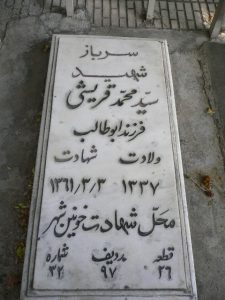 سرباز
شهید
سید محمد قریشی
فرزند ابوطالب
ولادت شهادت
۱۳۳۷ ۱۳۶۱/۳/۳
محل شهادت خونین شهر
قطعه ردیف شماره
۲۶ ۹۷ ۳۲